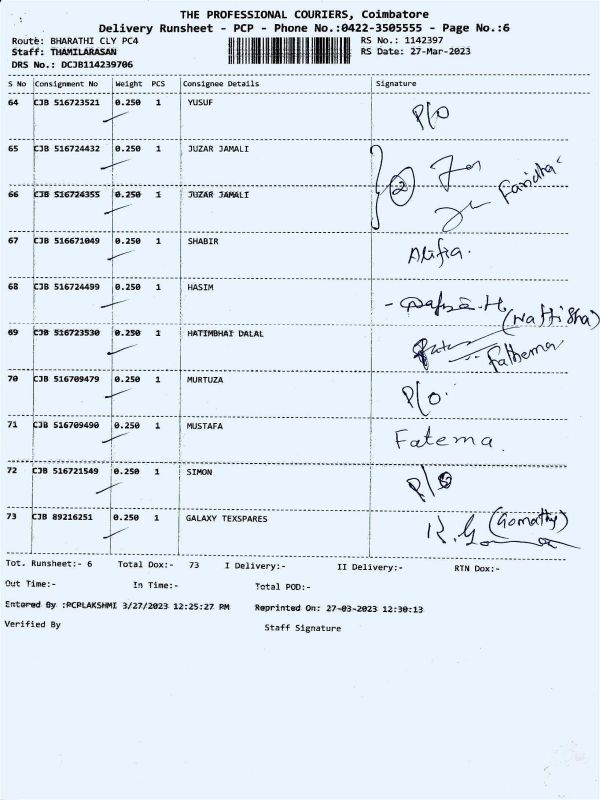 THE PROFESSIONAL COURIERS, Coimbatore
Delivery Runsheet - PCP - Phone No.:0422-3505555 - Page No.:6
Route: BHARATHI CLY PC4 RS No.: 1142397
Staff: THAMILARASAN RS Date: 27-Mar-2023
DRS No.: DCJB114239706
S No Consignment No Weight PCS Consignee Details Signature
64 CJB 516723521 0.250 1 YUSUF P/O
65 CJB 516724432 0.250 1 JUZAR JAMALI 2
66 CJB 516724355 0.250 1 JUZAR JAMALI Faridha
67 CJB 516671049 0.250 1 SHABIR Alifia.
68 CJB 516724499 0.250 1 HASIM
69 CJB 516723530 0.250 1 HATIMBHAI DALAL Fathema
70 CJB 516709479 0.250 1 MURTUZA P/O.
71 CJB 516709490 0.250 1 MUSTAFA Fatema.
72 CJB 516721549 0.250 1 SIMON P/O
73 CJB 89216251 0.250 1 GALAXY TEXSPARES (Gomathy)
Tot. Runsheet:- 6 Total Dox:- 73 I Delivery:- II Delivery:- RTN Dox:-
Out Time:- In Time:- Total POD:-
Entered By :PCPLAKSHMI 3/27/2023 12:25:27 PM Reprinted On: 27-03-2023 12:30:13
Verified By Staff Signature